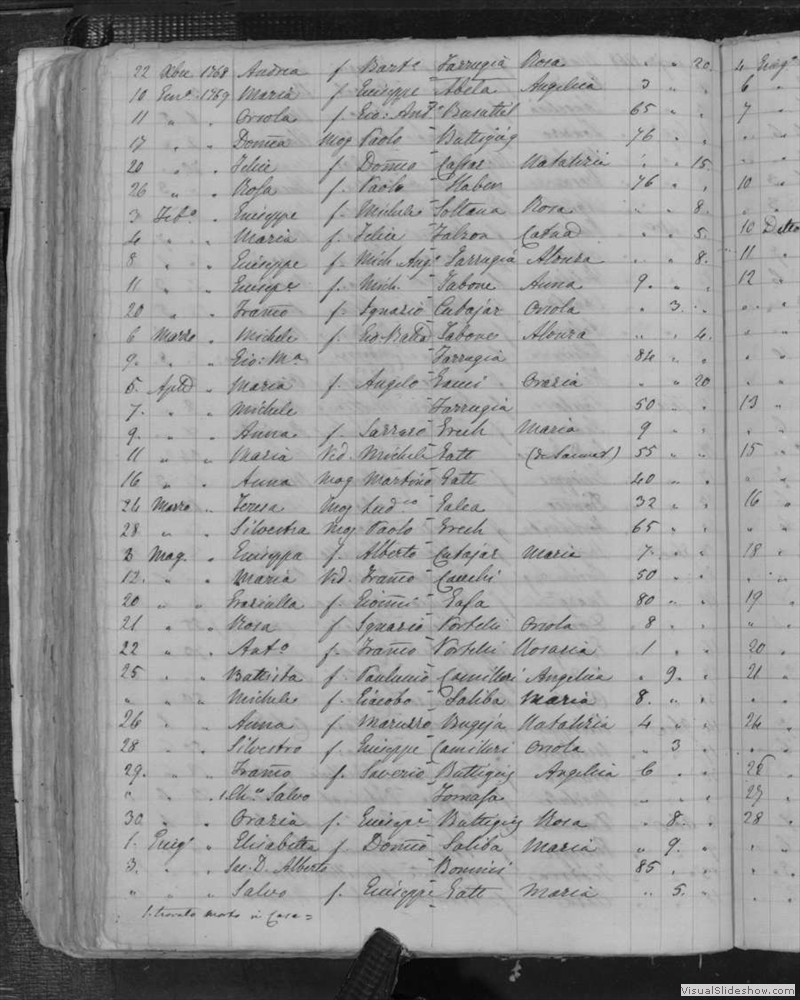 22 Xbre 1768 Andrea f. Bart. Farrugia Rosa " " 20.
10 Gen. 1769 Maria f. Giuseppe Abela Angelica 3 " "
11 " " Orsola f. Gio: Ant. Busuttil 65 " "
17 " " Domca Mog Paolo Buttigieg 76 " "
20 " " Felice f. Domco Cassar Natalizia " " 15.
26 " " Rosa f. Paolo Haber 76 " "
3 Feb. " Giuseppe f. Michele Sultana Rosa " " 8.
4 " " Maria f. Felice Falzon " " 5.
8 " " Giuseppe f. Mich. Ang. Farrugia Alonza " " 8.
11 " " Giuseppe f. Mich. Tabone Anna 9. " "
20 " " Franco f. Ignazio Cutajar Orsola " 3. "
6 Marzo " Michele f. Gio. Batta Tabone Alonza " " 4.
9. " " Gio: Ma Farrugia 84 " "
5. Aple " Maria f. Angelo Gauci Grazia " " 20
7. " " Michele Farrugia 50 " "
9. " " Anna f. Grech Maria 9 " "
11 " " Maria Vid. Michele Gatt 55 " "
16 " " Anna Mog Martino Gatt 40 " "
26 Marzo " Teresa Mog Ludco Galea 32 " "
28 " " Silvestra Mog Paolo Grech 65 " "
3 Mag. " Giuseppa f. Alberto Cutajar Maria 7. " "
12. " " Maria Vid. Franco 50 " "
20 " " Graziulla f. Giomi Gafa 80 " "
21 " " Rosa f. Ignazio Portelli Orsola 8 " "
22 " " Anto f. Franco Portelli Rosaria 1 " "
25 " " Battista f. Camilleri Angelica " 9. "
" " " Michele f. Giacobo Saliba Maria 8. " "
26 " " Anna f. Bugeja Natalizia 4 " "
28 " " Silvestro f. Giuseppe Camilleri Orsola " 3 "
29. " " Franco f. Saverio Buttigieg Angelica 6 " "
" " " 1. Ch. Salvo " " "
30 " " Grazia f. Giuseppe Buttigieg Rosa " 8. "
1. Giug " Elisabetta f. Domco Saliba Maria " 9. "
3. " " Sac. D. Alberto Bonnici 85 " "
" " " Salvo f. Giuseppe Gatt Maria " 5. "
1. trovato morto in Casa =
4 Giug
6 "
7 "
10 "
10 Detto
11 "
12 "
13 "
15 "
16 "
18 "
19 "
20 "
21 "
24 "
25
27 "
28 "
VisualSlideshow.com